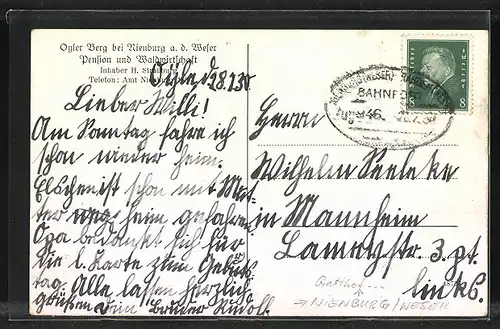 Oyler Berg bei Nienburg a. d. Weser
Pension und Waldwirtschaft
Inhaber H.
Telefon: Amt
Oyle, d. 28.7.30
Lieber Willi!
Am Sonntag fahre ich
schon wieder heim.
Elschen ist schon mit Mut-
ter heim gefahren.
Opa bedankt sich für
die l. Karte zum Geburts
tag. Alle lassen herzlich
grüßen dein Bruder Rudolf.
BAHNPOST
8 8
Herrn
Wilhelm Seeleke
in Mannheim
Lameystr. 3. pt.
links.
Gasthof
→ NIENBURG/WESER